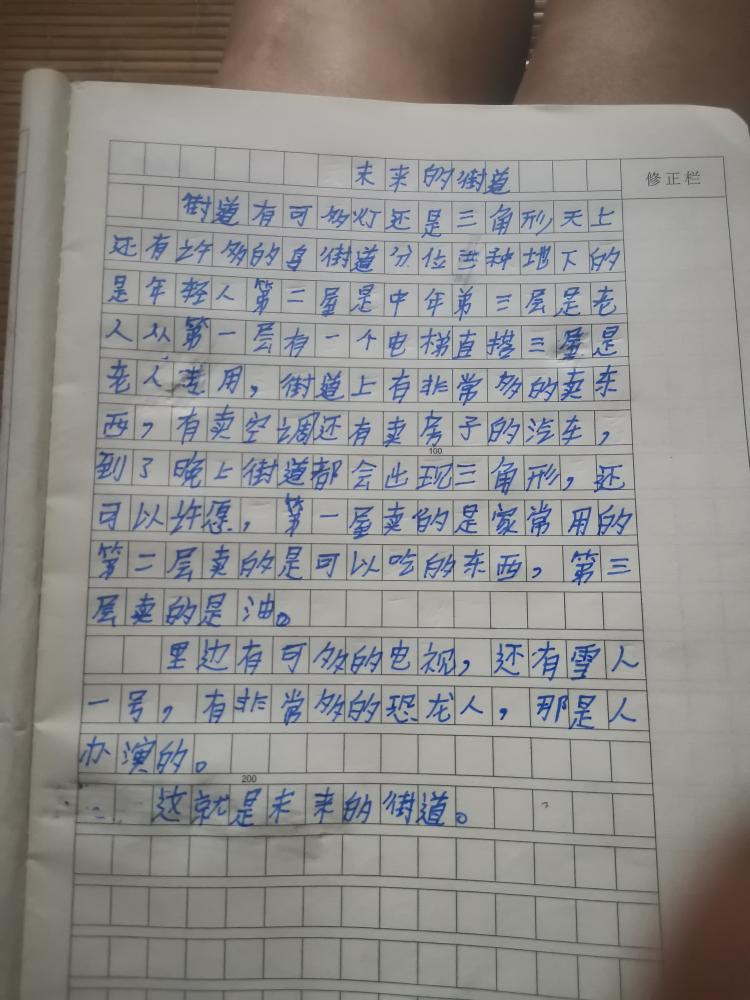 未来的街道
修正栏
街道有可多灯还是三角形天上
还有许多的鸟街道分位三种地下的
是年轻人第二层是中年第三层是老
人从第一层有一个电梯直搭三层是
老人专用，街道上有非常多的卖东
西，有卖空调还有卖房子的汽车，
100
到了晚上街道都会出现三角形，还
可以许愿，第一层卖的是家常用的
第二层卖的是可以吃的东西，第三
层卖的是油。
里边有可多的电视，还有雪人
一号，有非常多的恐龙人，那是人
办演的。
200
这就是未来的街道。